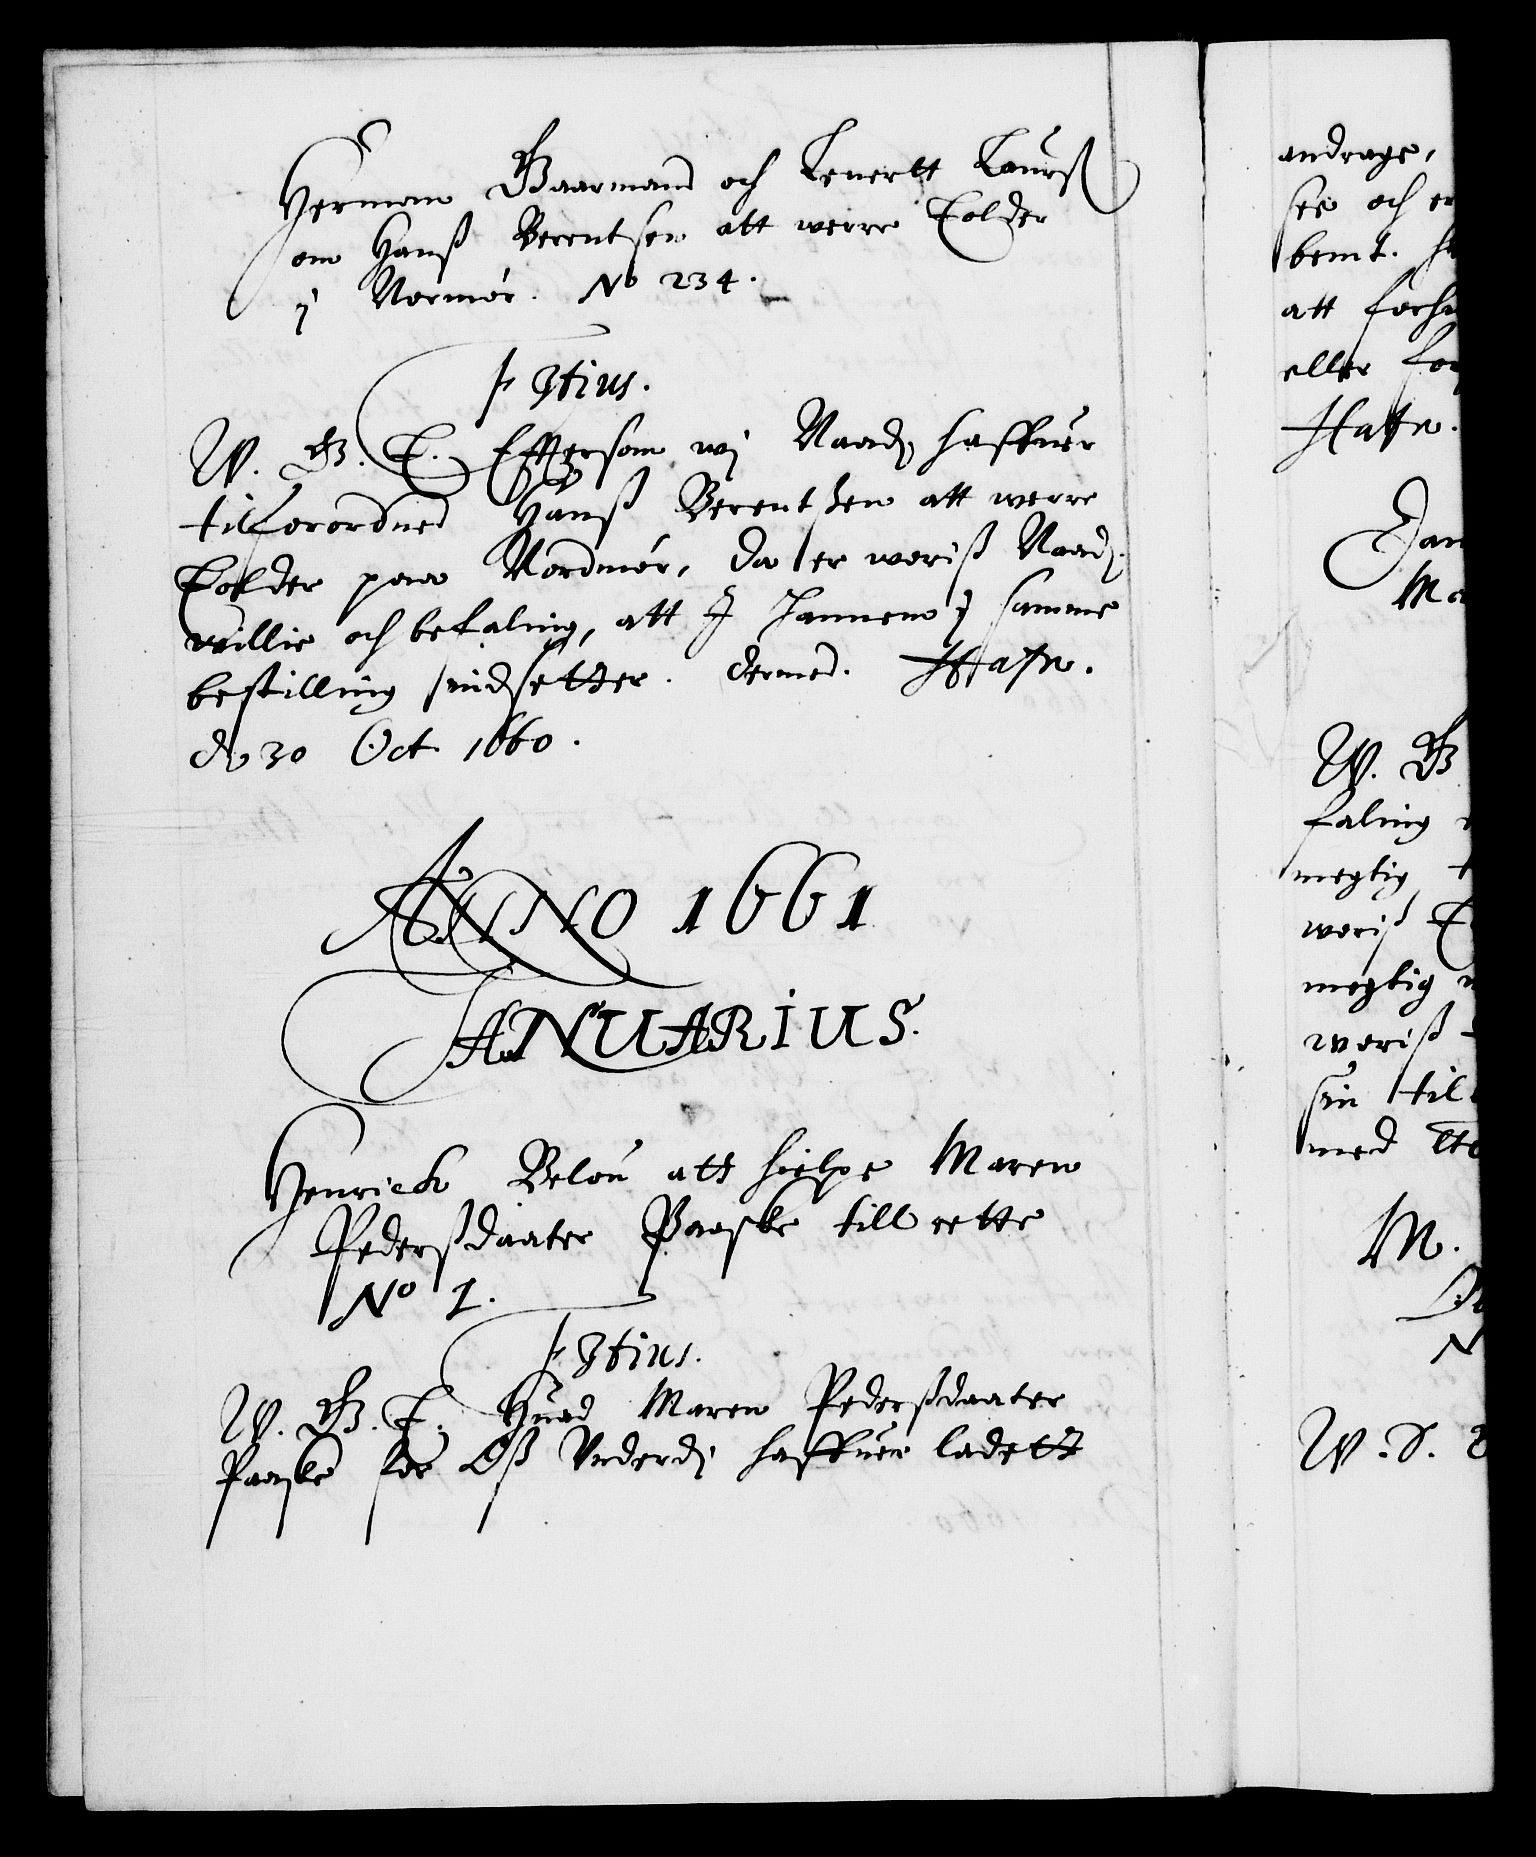 Herman Gaarmand och Lenertt Laurß
om Hanß Berentsen att werre Tolder
i Normör. No 234.
F 3tius.
W. G. T. Efftersom wj Naadj. haffuer
tilforordned Hanß Berentsen att werre
Tolder paa Nordmör, da er woriß Naadj.
willie och befaling, att I hannem i samme
bestilling indsetter. dermed. Haffn.
d. 30 Oct 1660.
ANNO 1661
JANUARIUS.
Henrick Belou att hielpe Maren
Pederßdaater Paaske till rette
No 1.
F 3tius.
W. G. T. Huad Maren Pederßdaater
Paaske for Oß Vnderdj haffuer ladett
andrage,
see och er
bemt.
att forh
eller for
Haffn.
Jan
Ma
W. G
faling
megtig
woriß
megtig
woriß
sin til
med
M.
N
W. S.